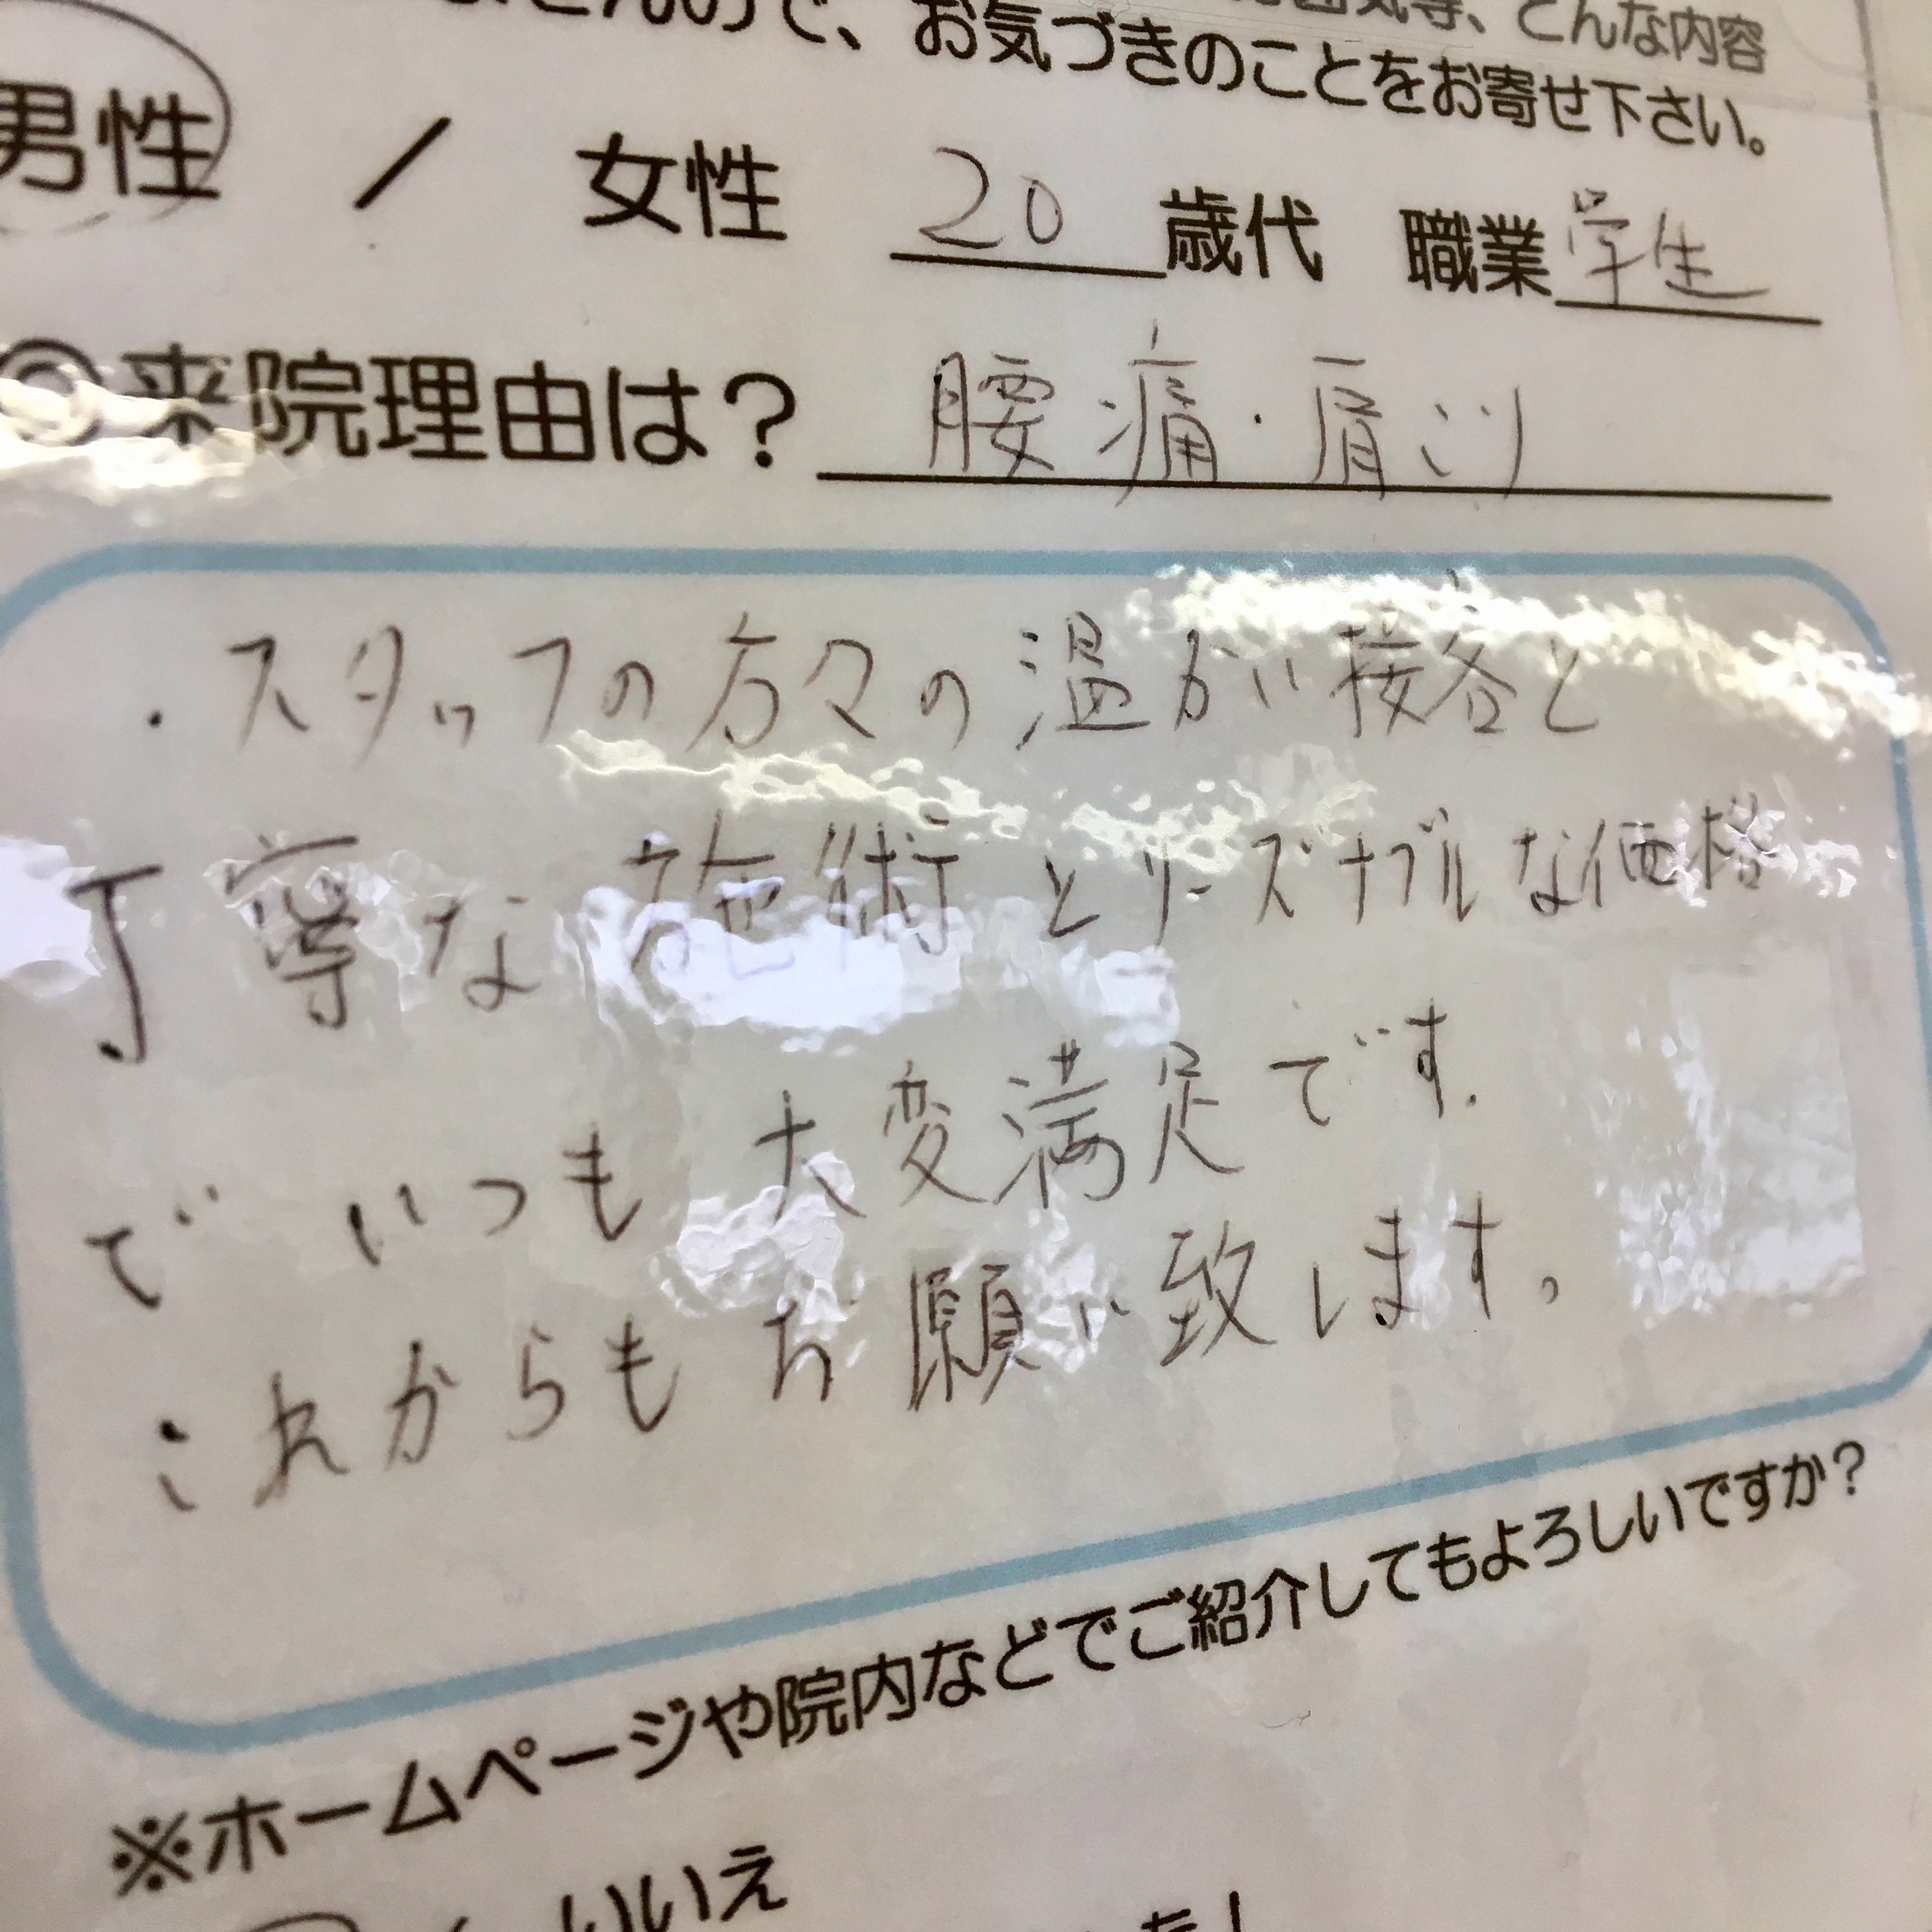 んので、お気づきのことをお寄せ下さい。
男性 / 女性 20歳代 職業学生
◎来院理由は? 腰痛・肩こり
・スタッフの方々の温かい接客と
丁寧な施術とリーズナブルな価格
で いつも 大変満足です.
これからもお願い致します。
※ホームページや院内などでご紹介してもよろしいですか?
いいえ